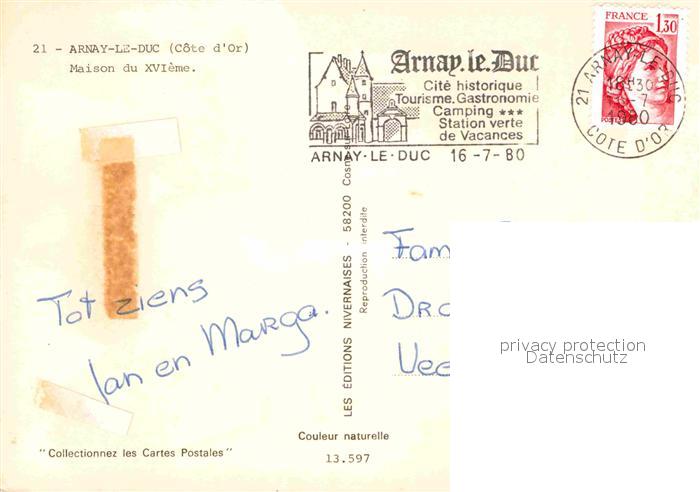 21 - ARNAY-LE-DUC (Côte d'Or)
Maison du XVIème.
Arnay.le.Duc
Cité historique
Tourisme.Gastronomie
Camping ***
Station verte
de Vacances
ARNAY·LE·DUC 16-7-80
FRANCE
1,30
POSTES
21 ARNAY-LE-DUC
18H30
7
1980
COTE D'OR
LES ÉDITIONS NIVERNAISES - 58200 Cosne-sur-
Reproduction interdite
Tot ziens
Jan en Marga.
Fam
Dro
Vee
privacy protection
Datenschutz
"Collectionnez les Cartes Postales"
Couleur naturelle
13.597